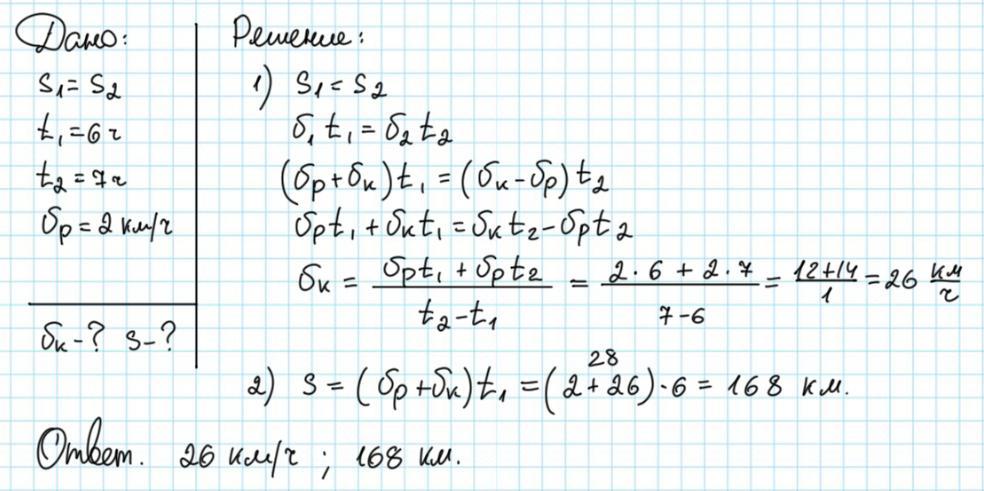 Дано:
S₁ = S₂
t₁ = 6 ч
t₂ = 7 ч
υр = 2 км/ч
υк - ? S - ?
Решение:
1) S₁ = S₂
υ₁ t₁ = υ₂ t₂
(υр + υк) t₁ = (υк - υр) t₂
υр t₁ + υк t₁ = υк t₂ - υр t₂
υк = (υр t₁ + υр t₂) / (t₂ - t₁) = (2 · 6 + 2 · 7) / (7 - 6) = (12 + 14) / 1 = 26 км/ч
28
2) S = (υр + υк) t₁ = (2 + 26) · 6 = 168 км.
Ответ. 26 км/ч ; 168 км.